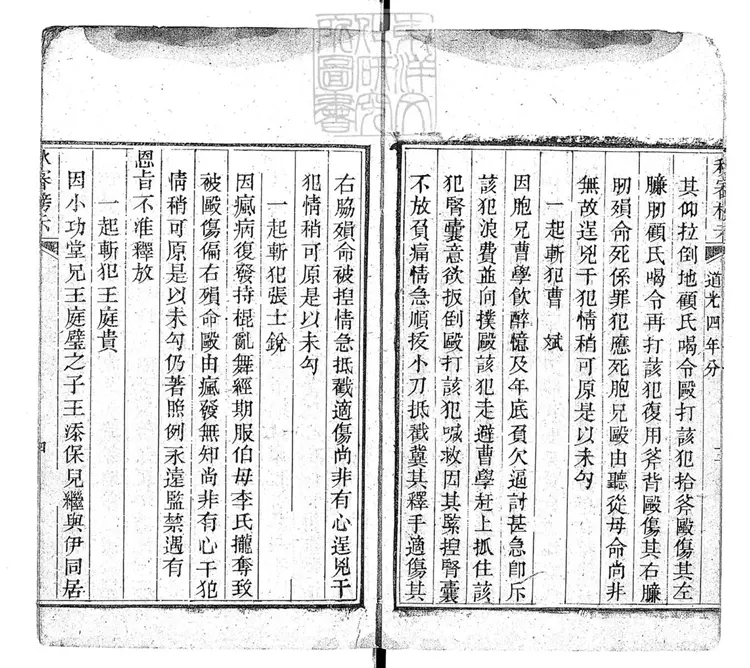 秋審榜示
道光四年分
其仰拉倒地顧氏喝令毆打該犯拾斧毆傷其左
臁肕顧氏喝令再打該犯復用斧背毆傷其右臁
肕殞命死係罪犯應死胞兄毆由聽從母命尚非
無故逞兇干犯情稍可原是以未勾
一起斬犯曹 斌
因胞兄曹學飲醉憶及年底負欠逼討甚急卽斥
該犯浪費並向撲毆該犯走避曹學赶上抓住該
犯腎囊意欲扳倒毆打該犯喊救因其緊揑腎囊
不放負痛情急順拔小刀抵戳冀其釋手適傷其
右脇殞命被揑情急抵戳適傷尚非有心逞兇干
犯情稍可原是以未勾
一起斬犯張士銳
因瘋病復發持棍亂舞經期服伯母李氏攏奪致
被毆傷偏右殞命毆由瘋發無知尚非有心干犯
情稍可原是以未勾仍著照例永遠監禁遇有
恩旨不准釋放
一起斬犯王庭貴
因小功堂兄王庭璧之子王添保兒繼與伊同居
秋審榜示
四
東洋文化研究所圖書